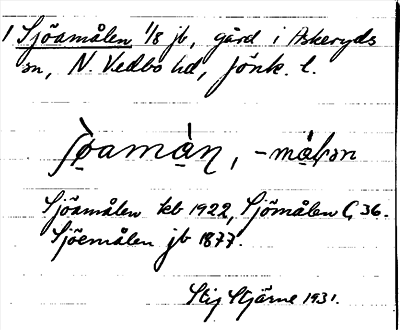 1 Sjöamålen 1/8 jb, gård i Askeryds
sn, N. Vedbo hd, Jönk. l.
Sjöamålen kb 1922, Sjömålen G 36.
Sjöemålen jb 1877.
Stig Stjärne 1931.